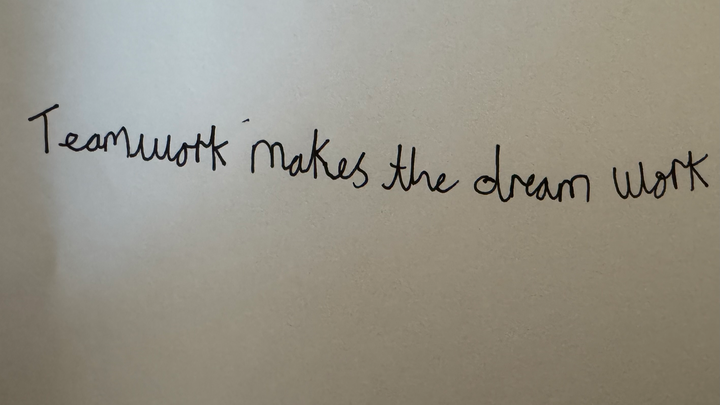 Teamwork makes the dream work